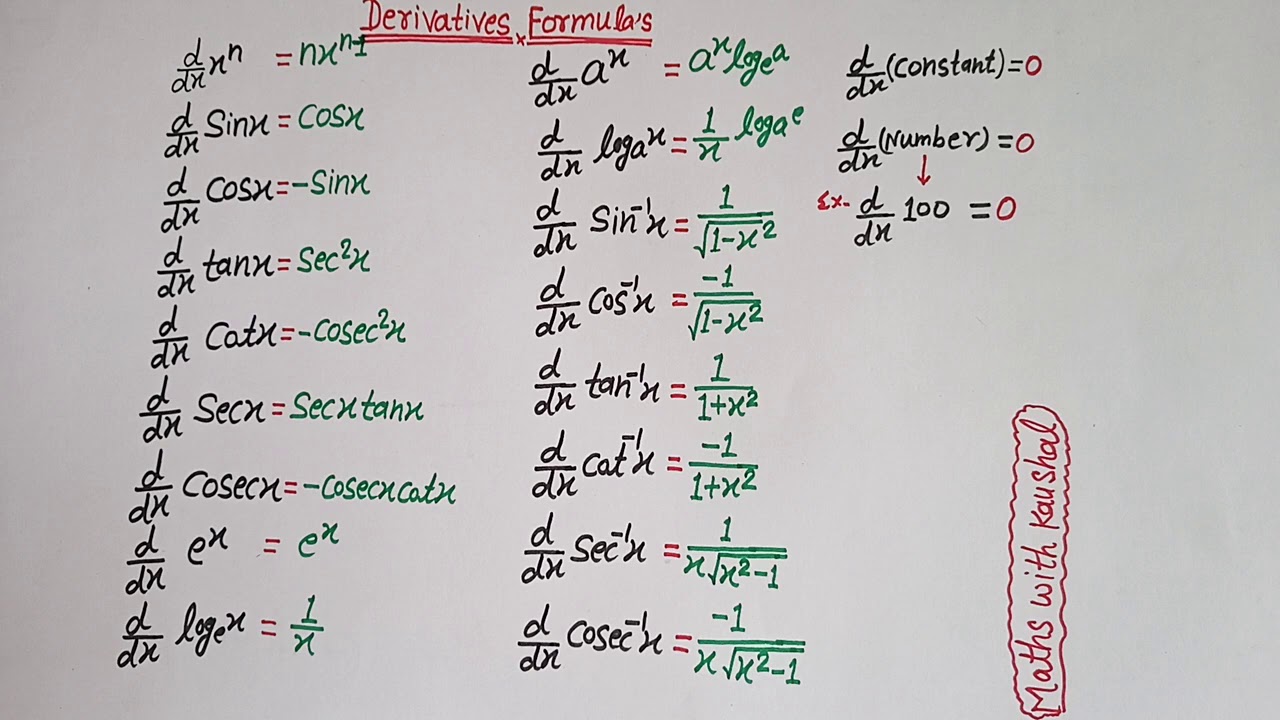 Derivatives Formula's
d/dx xⁿ = nxⁿ⁻¹
d/dx Sinx = Cosx
d/dx Cosx = -Sinx
d/dx tanx = Sec²x
d/dx Catx = -Cosec²x
d/dx Secx = Secx tanx
d/dx Cosecx = -cosecx catx
d/dx eˣ = eˣ
d/dx logₑx = 1/x
d/dx aˣ = aˣ logₑa
d/dx logₐx = 1/x logₐe
d/dx Sin⁻¹x = 1/√(1-x²)
d/dx Cos⁻¹x = -1/√(1-x²)
d/dx tan⁻¹x = 1/(1+x²)
d/dx Cat⁻¹x = -1/(1+x²)
d/dx Sec⁻¹x = 1/(x√(x²-1))
d/dx Cosec⁻¹x = -1/(x√(x²-1))
d/dx (Constant) = 0
d/dx (Number) = 0
↓
Ex. d/dx 100 = 0
Maths with Kaushal